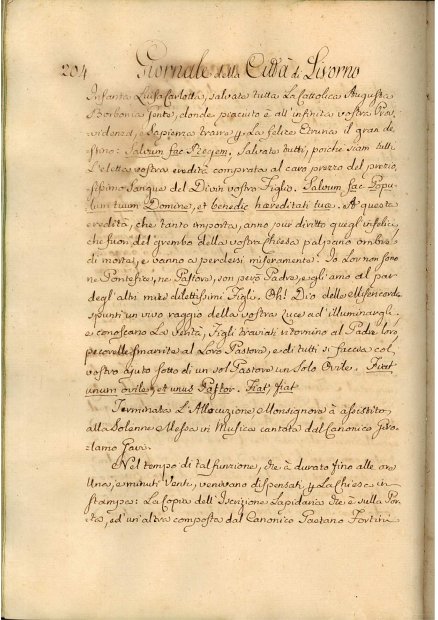 204 Giornale della Città di Livorno
Infanta Luisa Carlotta, salvate tutta La Cattolica Augusta
Borbonia Gente, donde piaciuto è all'infinita vostra Prov
videnza, e Sapienza trarre p. La felice Etruria il gran de
stino: Salvum fac Regem. Salvate tutti, poiche siam tutti
L'eletta vostra eredità comprata al caro prezzo del prezio
sissimo Sangue del Divin vostro Figlio. Salvum fac Popu
lum tuum Domine, et benedic hæreditati tuæ. A questa
eredità, che tanto importa, anno pur diritto quegl'infelici,
che fuori del grembo della vostra Chiesa palpano ombre
di morte, e vanno a perdersi miseramente. Io Lor non sono
ne Pontefice, ne Pastore, son però Padre, e gli amo al par
degl'altri miei dilettissimi Figli. Oh! Dio delle Misericordie
spunti un vivo raggio della vostra Luce ad illuminargli,
e conoscano La verità, Figli traviati ritornino al Padre loro,
pecorelle smarrite al Loro Pastore, e di tutti si faccia col
vostro ajuto sotto di un sol Pastore un Solo Ovile. Fiat
unum ovile, et unus Pastor. Fiat, fiat
Terminata L'Allocuzione Monsignore à assistito,
alla Solenne Messa in Musica cantata dal Canonico Giro
lamo Gavi.
Nel tempo di tal funzione, che è durato fino alle ore
Una, e minuti Venti, venivano dispensati p. La Chiesa in
stampa: La Copia dell'Iscrizione Lapidaria che è sulla Por
ta, ed un'altra composta dal Canonico Gaetano Fortini